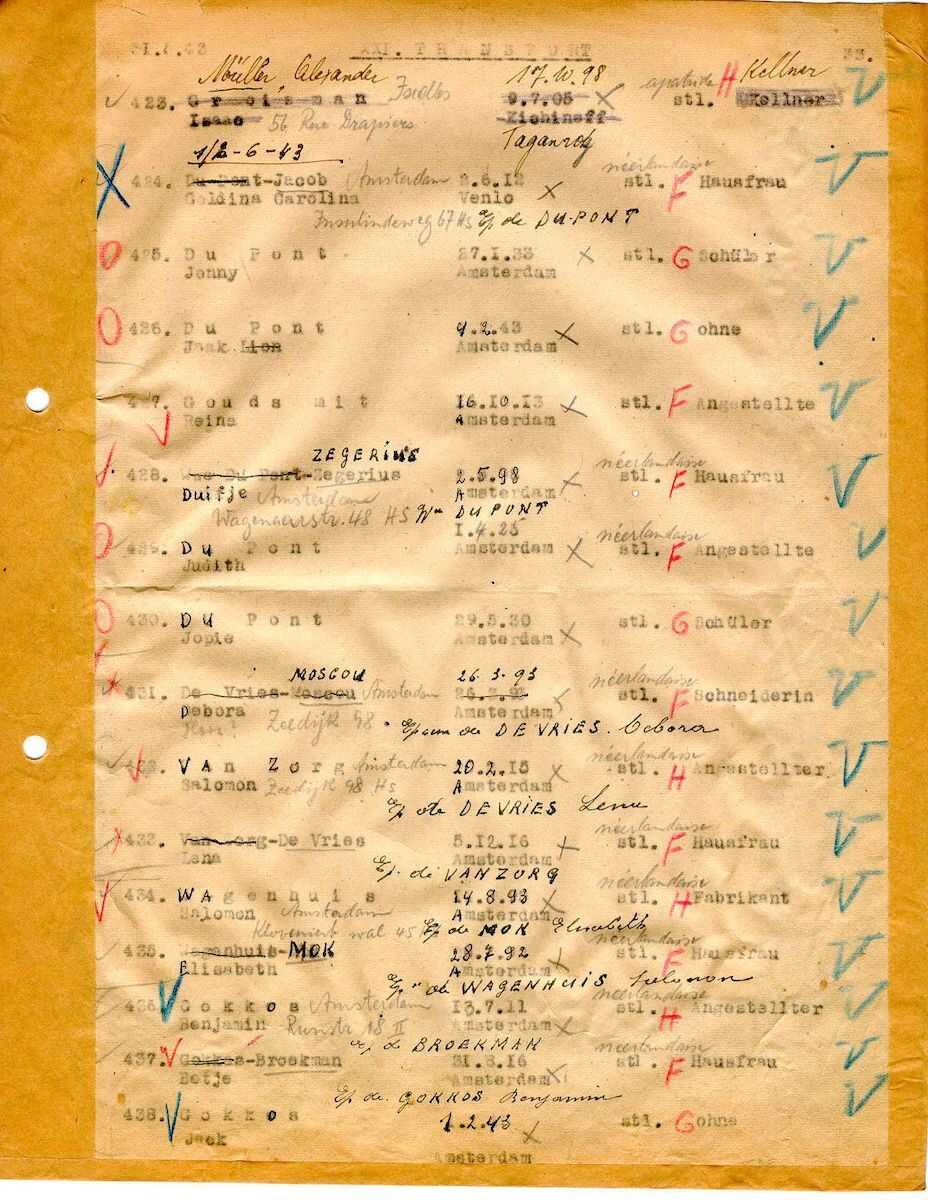 31.7.43 XXI. T R A N S P O R T 33.
Müller Alexander 17.IV.98 apatride Kellner
423. G r o i s m a n 9.7.05 stl. H Kellner
Isaac 56 Rue Drapiers Kichineff
1/2-6-43 Taganrog
néerlandaise
424. Du Pont-Jacob Amsterdam 2.6.12 stl. F Hausfrau
Goldina Carolina Venlo
Insulindeweg 67 Hs Ep de DU-PONT
425. D u P o n t 27.I.33 stl. G Schüler
Jonny Amsterdam
426. D u P o n t 9.2.43 stl. G ohne
Jaak Lion Amsterdam
427. G o u d s m i t 16.10.13 stl. F Angestellte
Reina Amsterdam
ZEGERIUS néerlandaise
428. Wwe Du Pont-Zegerius 2.5.98 stl. F Hausfrau
Duifje Amsterdam Amsterdam
Wagenaarstr. 48 HS Vve DU PONT
I.4.25 néerlandaise
429. D u P o n t Amsterdam stl. F Angestellte
Judith
430. D u P o n t 29.5.30 stl. G Schüler
Jopie Amsterdam
MOSCOU 26.3.93 néerlandaise
431. De Vries-Moscou Amsterdam 26.3.93 stl. F Schneiderin
Debora Zeedijk 98 Amsterdam
Epouse de DE VRIES
néerlandaise
432. V A n Z o r g Amsterdam 20.2.15 stl. H Angestellter
Salomon Zeedijk 98 Hs Amsterdam
Ep de DE VRIES Lena
néerlandaise
433. Van Zorg-De Vries 5.12.16 stl. F Hausfrau
Lena Amsterdam
Ep. de VAN ZORG
néerlandaise
434. W A g e n h u i s 14.8.93 stl. H Fabrikant
Salomon Amsterdam Amsterdam
wal 45 Ep de MOK Elisabeth
néerlandaise
435. MOK 28.7.92 stl. F Hausfrau
Elisabeth Amsterdam
Ep de WAGENHUIS Salomon
néerlandaise
436. G o k k o s Amsterdam 13.7.11 stl. H Angestellter
Benjamin Runstr 18 II Amsterdam
Ep de BROEKMAN néerlandaise
437. Gokkos-Broekman 31.8.16 stl. F Hausfrau
Betje Amsterdam
Ep de GOKKOS Benjamin
438. G o k k o s 1.2.43 stl. G ohne
Jack
Amsterdam